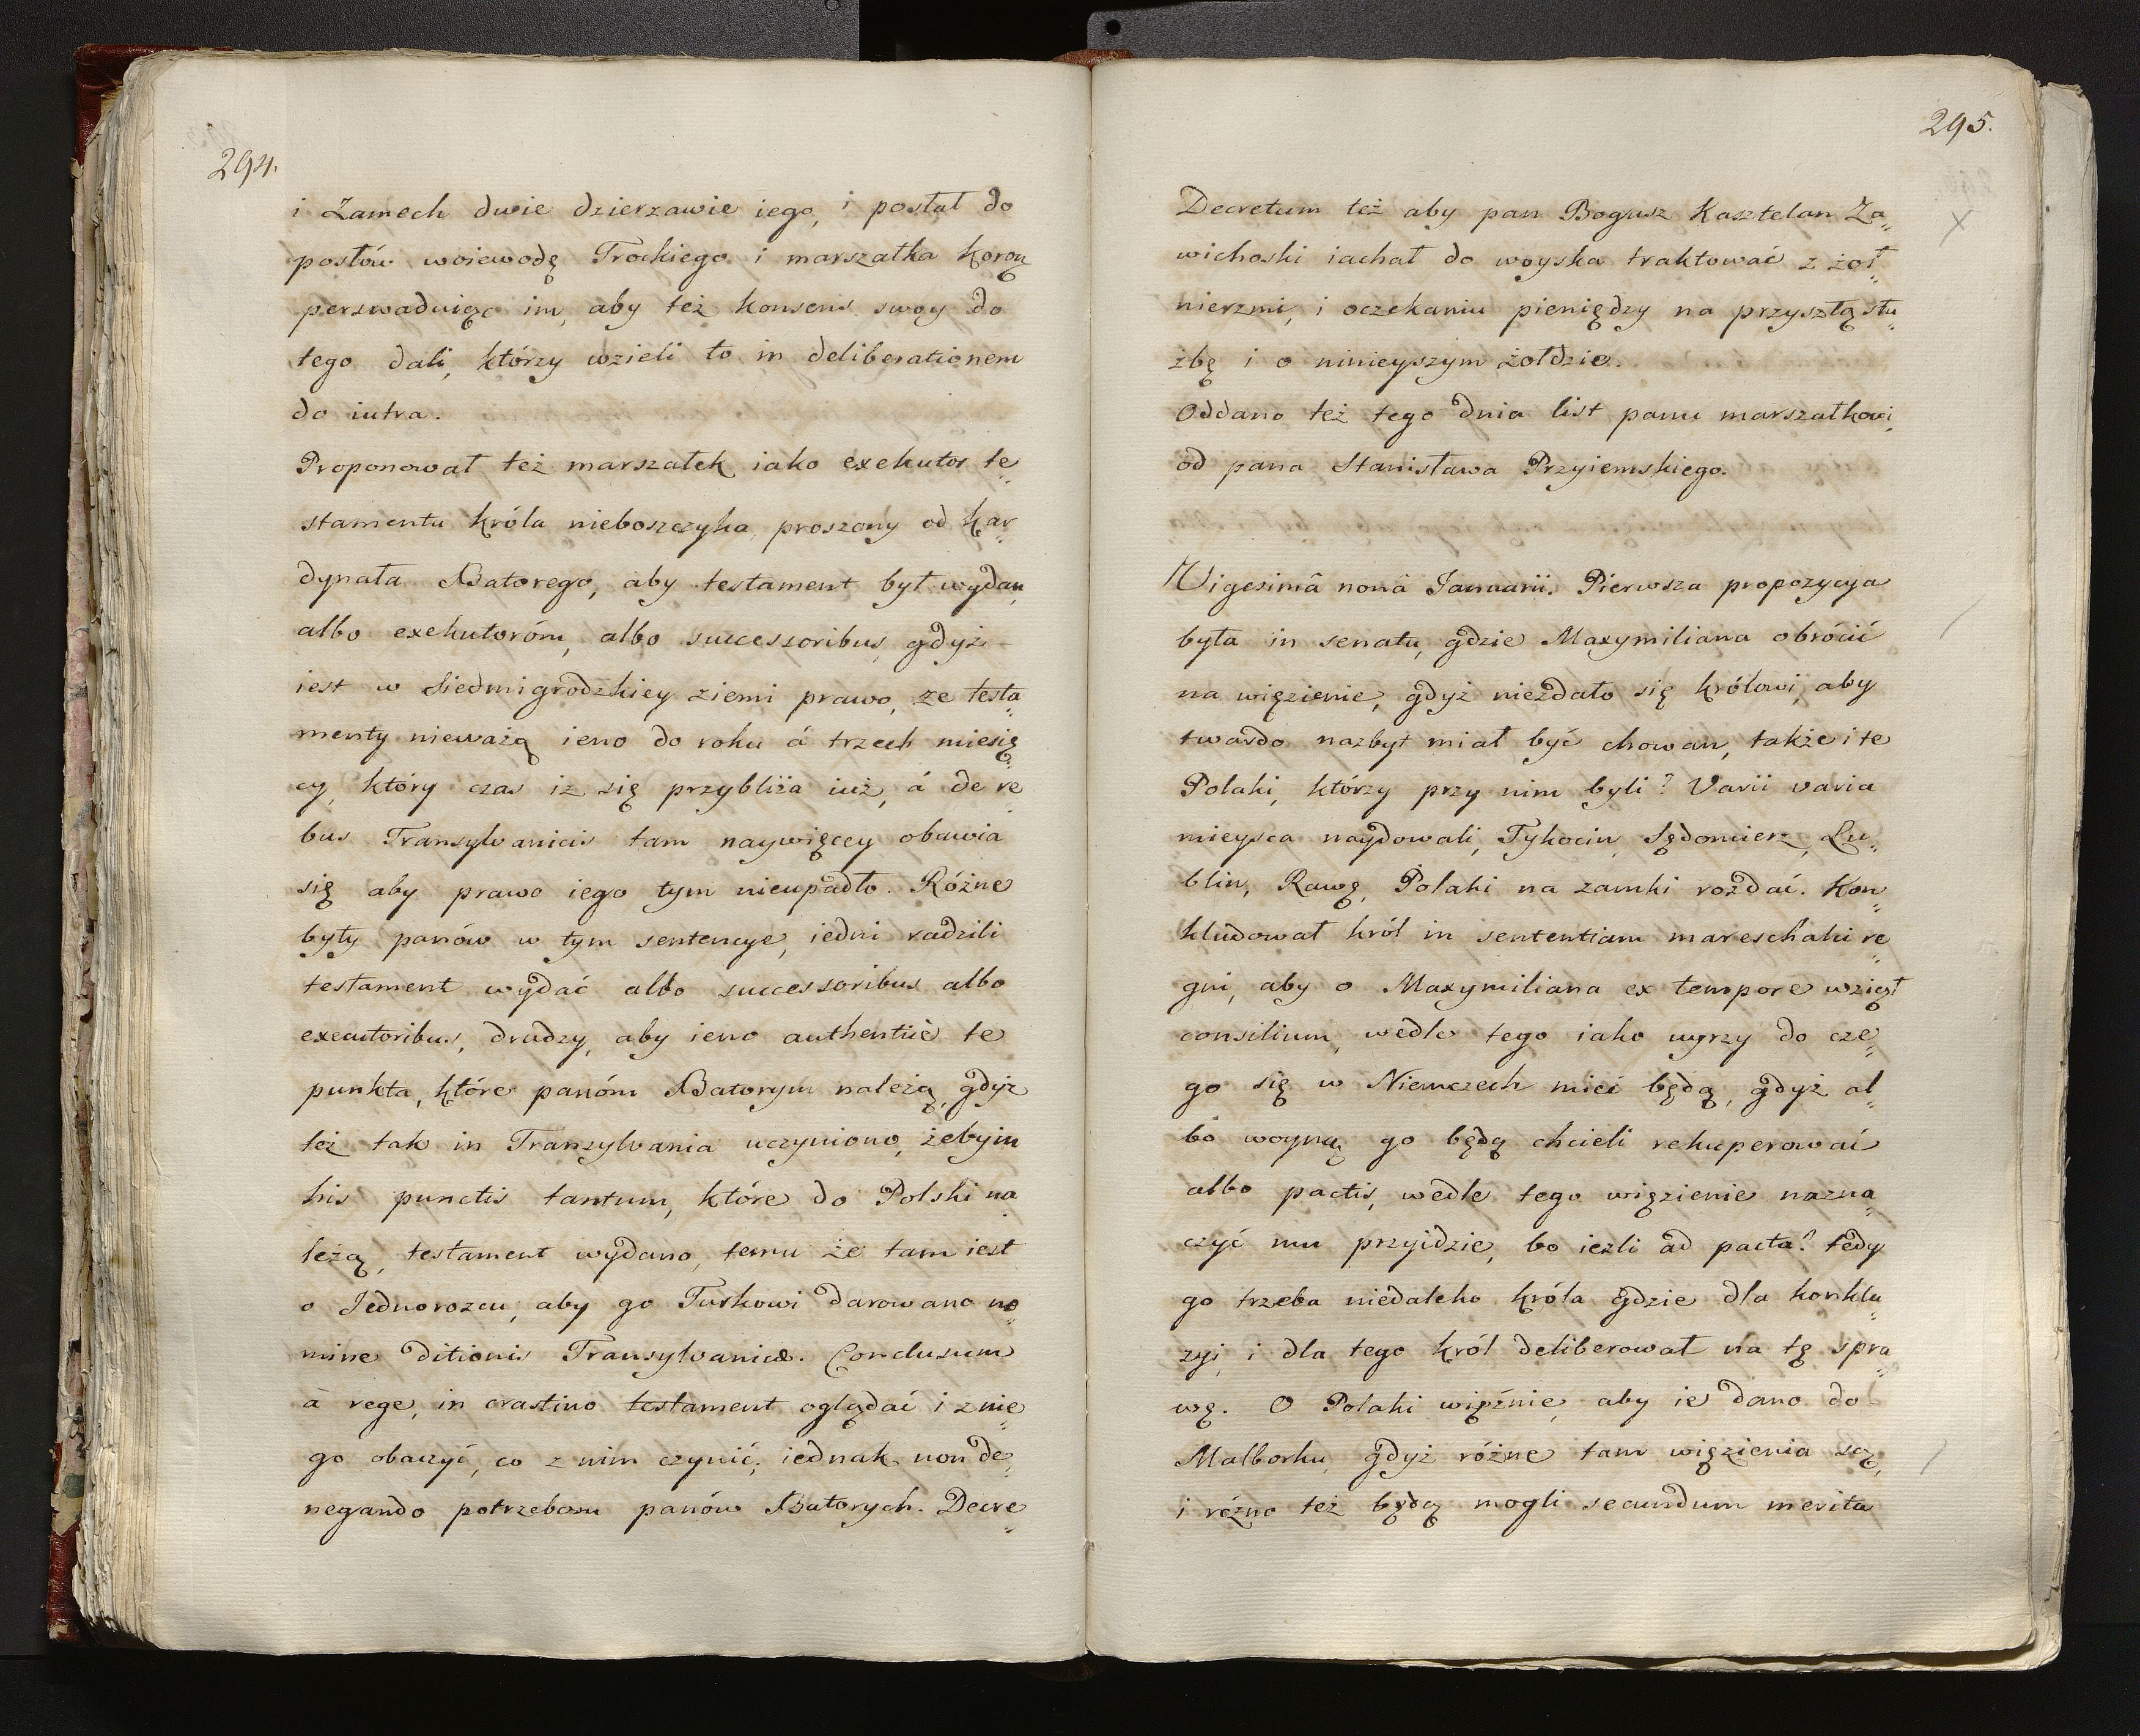 294.
i Zamech dwie dzierzawie iego, i posłał do
posłów woiewodę Trockiego i marszałka koron
perswaduiąc im, aby też konsens swoy do
tego dali, którzy wzieli to in deliberationem
do iutra.
Proponował też marszałek iako exekutor te„
stamentu króla nieboszczyka, proszony od kar„
dynała Batorego, aby testament był wydan,
albo exekutoróm, albo successoribus, gdyż
iest w Siedmigrodzkiey ziemi prawo, ze testa„
menty nieważą ieno do roku á trzech miesię„
cy, który czas iz się przybliża iuż, á de re„
bus Transylvanicis tam naywięcey obawia
się aby prawo iego tym nieupadło. Różne
były panów w tym sentencye, iedni radzili
testament wydać albo successoribus albo
executoribus, drudzy, aby ieno authenticè te
punkta, które panóm Batorym należą, gdyż
też tak in Transylvania uczyniono, żeby in
his punctis tantum, które do Polski na„
leżą, testament wydano, temu że tam iest
o Jednorozcu, aby go Turkowi darowano no„
mine ditionis Transylvanicæ. Conclusum
à rege, in crastino testament oglądać i z nie„
go obaczyć, co z nim czynić, iednak non de„
negando potrzebom panów Batorych. Decre„
295.
Decretum też aby pan Bogusz Kasztelan Za„
wichoski iachał do woyska traktować z żoł„
nierzmi, i oczekaniu pieniędzy na przyszłą słu„
żbę i o ninieyszym żołdzie.
Oddano też tego dnia list panu marszałkowi,
od pana Stanisława Przyiemskiego.
Vigesimâ nonâ Januarii. Pierwsza propozycya
była in senatu, gdzie Maxymiliana obrócić
na więzienie, gdyż niezdało się królowi, aby
twardo nazbyt miał być chowan, także i te
Polaki, którzy przy nim byli? Varii varia
mieysca naydowali, Tykocin, Sędomierz, Lu„
blin, Rawę, Polaki na zamki rozdać. Kon„
kludował król in sententiam mareschalci re„
gni, aby o Maxymiliana ex tempore wziął
consilium, wedle tego iako uyrzy do cze„
go się w Niemczech mieć będą, gdyż al„
bo woyną go będą chcieli rekuperować
albo pactis, wedle tego więzienie nazna„
czyć mu przyidzie, bo iezli ad pacta? tedy
go trzeba niedaleko króla gdzie dla konklu„
zyi, i dla tego król deliberował na tę spra„
wę. O Polaki więźnie, aby ie dano do
Malborku, gdyż różne tam więzienia są,
i rózno też będą mogli secundum merita